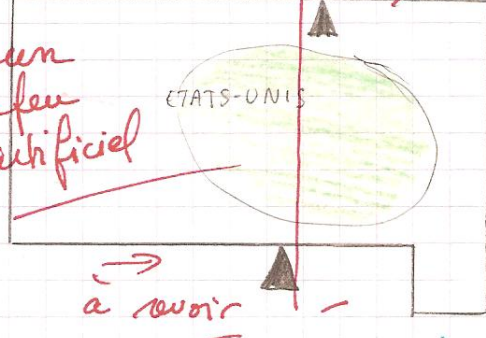 un
feu
artificiel
ETATS-UNIS
à revoir